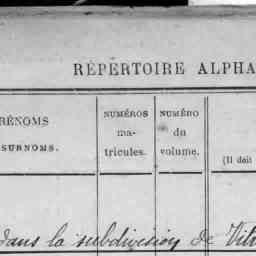 RÉPERTOIRE ALPHA
RÉNOMS
SURNOMS.
NUMÉROS
ma-
tricules.
NUMÉRO
du
volume.
(Il doit
dans la subdivision de Vit